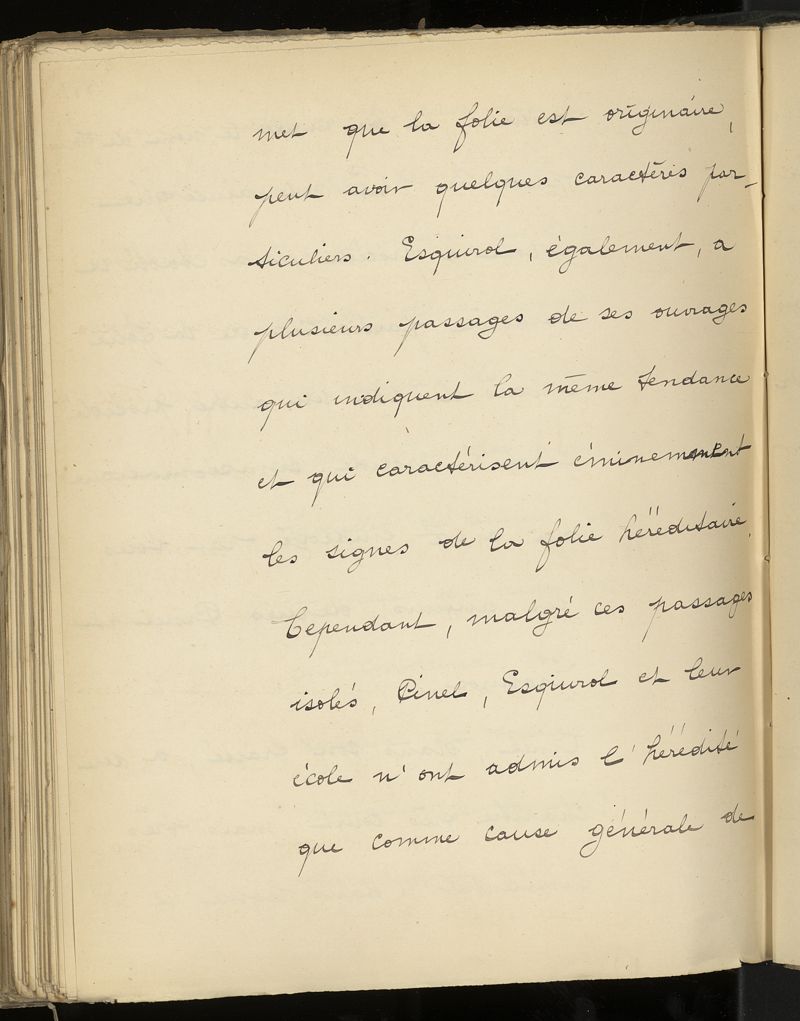 met que la folie est originaire,
peut avoir quelques caractères par-
ticuliers. Esquirol, également, a
plusieurs passages de ses ouvrages
qui indiquent la même tendance
et qui caractérisent éminemment
les signes de la folie héréditaire.
Cependant, malgré ces passages
isolés, Pinel, Esquirol et leur
école n'ont admis l'hérédité
que comme cause générale de